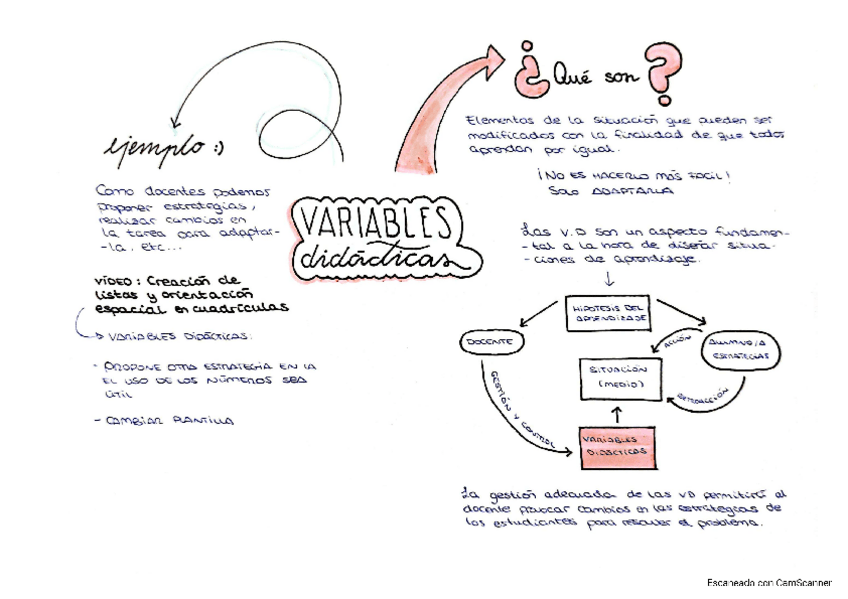 ¿Qué son?
Elementos de la situación que pueden ser
modificados con la finalidad de que todos
aprendan por igual.
¡NO ES HACERLO MÁS FÁCIL!
SOLO ADAPTARLA
Las V.D son un aspecto fundamen-
-tal a la hora de diseñar situa-
-ciones de aprendizaje.
HIPÓTESIS DEL
APRENDIZAJE
DOCENTE
ALUMNO/A
ESTRATEGIAS
ACCIÓN
SITUACIÓN
(MEDIO)
RETROACCIÓN
GESTIÓN Y CONTROL
VARIABLES
DIDÁCTICAS
La gestión adecuada de las VD permitirá al
docente provocar cambios en las estrategias de
los estudiantes para resolver el problema.
VARIABLES
didácticas
ejemplo :)
Como docentes podemos
proponer estrategias,
realizar cambios en
la tarea para adaptar-
-la. etc...
VÍDEO: Creación de
listas y orientación
espacial en cuadrículas
VARIABLES DIDÁCTICAS:
- PROPONE OTRA ESTRATEGIA EN LA
EL USO DE LOS NÚMEROS SEA
ÚTIL
- CAMBIAR PLANTILLA
Escaneado con CamScanner